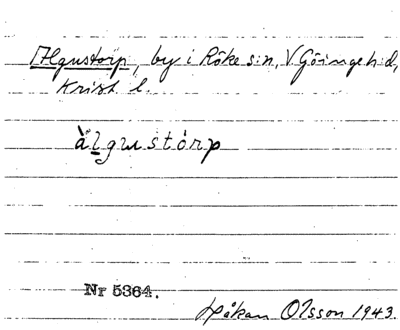 Algustorp, by i Röke s:n, V. Göinge h:d,
Krist. l.
àlgustòrp
Nr 5364.
Håkan Olsson 1943.